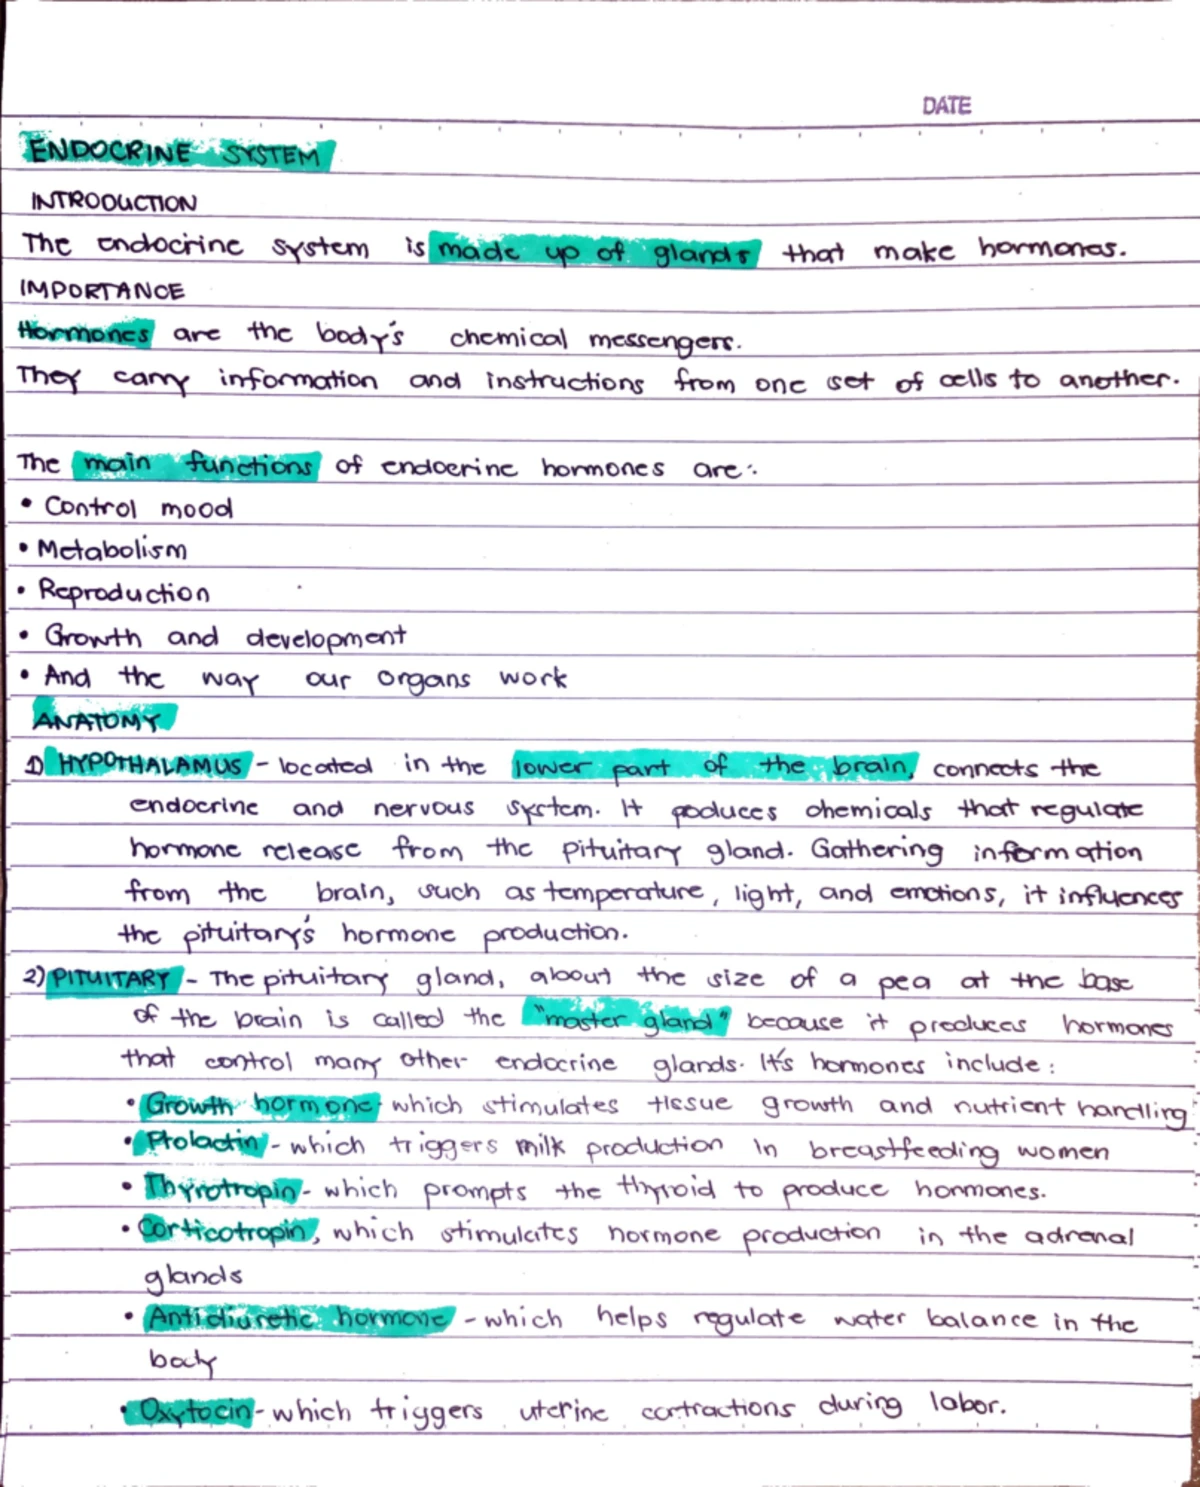 DATE
ENDOCRINE SYSTEM
INTRODUCTION
The endocrine system is made up of glands that make hormones.
IMPORTANCE
Hormones are the body's chemical messengers.
They carry information and instructions from one set of cells to another.
The main functions of endocrine hormones are:
• Control mood
• Metabolism
• Reproduction
• Growth and development
• And the way our organs work
ANATOMY
1) HYPOTHALAMUS - located in the lower part of the brain, connects the
endocrine and nervous system. It poduces chemicals that regulate
hormone release from the pituitary gland. Gathering information
from the brain, such as temperature, light, and emotions, it influences
the pituitary's hormone production.
2) PITUITARY - The pituitary gland, about the size of a pea at the base
of the brain is called the "master gland" because it produces hormones
that control many other endocrine glands. It's hormones include:
• Growth hormone which stimulates tissue growth and nutrient handling
• Prolactin - which triggers milk production in breastfeeding women
• Thyrotropin - which prompts the thyroid to produce hormones.
• Corticotropin, which stimulates hormone production in the adrenal
glands
• Antidiuretic hormone - which helps regulate water balance in the
body
• Oxytocin - which triggers uterine contractions during labor.